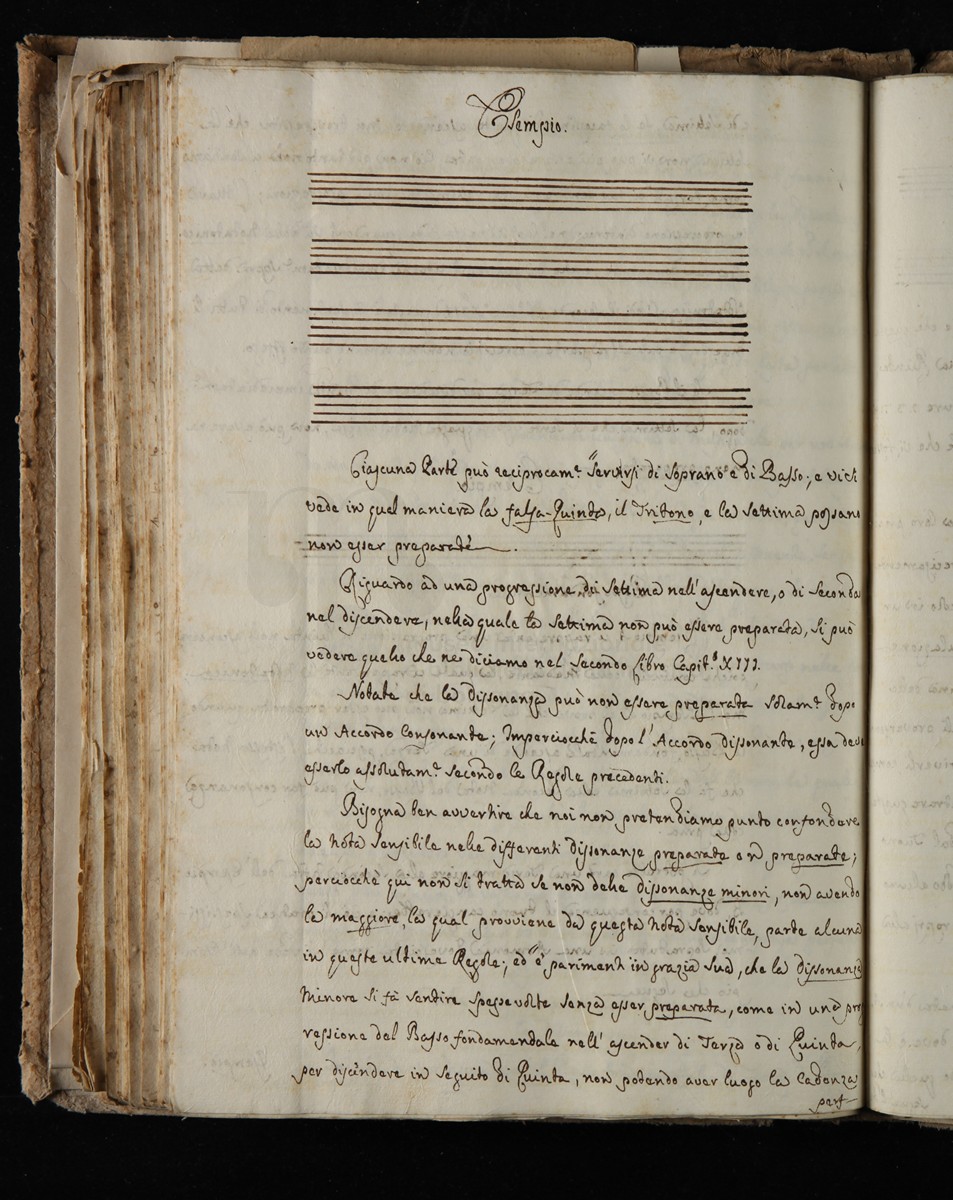 Esempio.
Ciascuna Parte può reciprocam.e servirsi di Soprano e di Basso; e vi si
vede in qual maniera la falsa-Quinta, il Tritono, e la Settima possano
non esser preparate.
Riguardo ad una progressione di Settima nell'ascendere, o di Seconda
nel discendere, nella quale la Settima non può essere preparata, si può
vedere quello che ne diciamo nel Secondo Libro Capit.o XIII.
Notate che la dissonanza può non essere preparata solam.e dopo
un Accordo Consonante; Imperciocchè dopo l'Accordo dissonante, essa deve
esserlo assolutam.e secondo le Regole precedenti.
Bisogna ben avvertire che noi non pretendiamo punto confondere
la nota sensibile nelle differenti dissonanze preparate o n preparate;
perciocchè qui non si tratta se non delle dissonanze minori, non avendo
la maggiore, la qual provviene da questa nota sensibile, parte alcuna
in queste ultime Regole; ed è parimenti in grazia sua, che la dissonanza
Minore si fà sentire spesse volte senza esser preparata, come in una prog
ressione del Basso fondamentale nell'ascender di Terza o di Quinta,
per discendere in seguito di Quinta, non potendo aver luogo la Cadenza
perf-